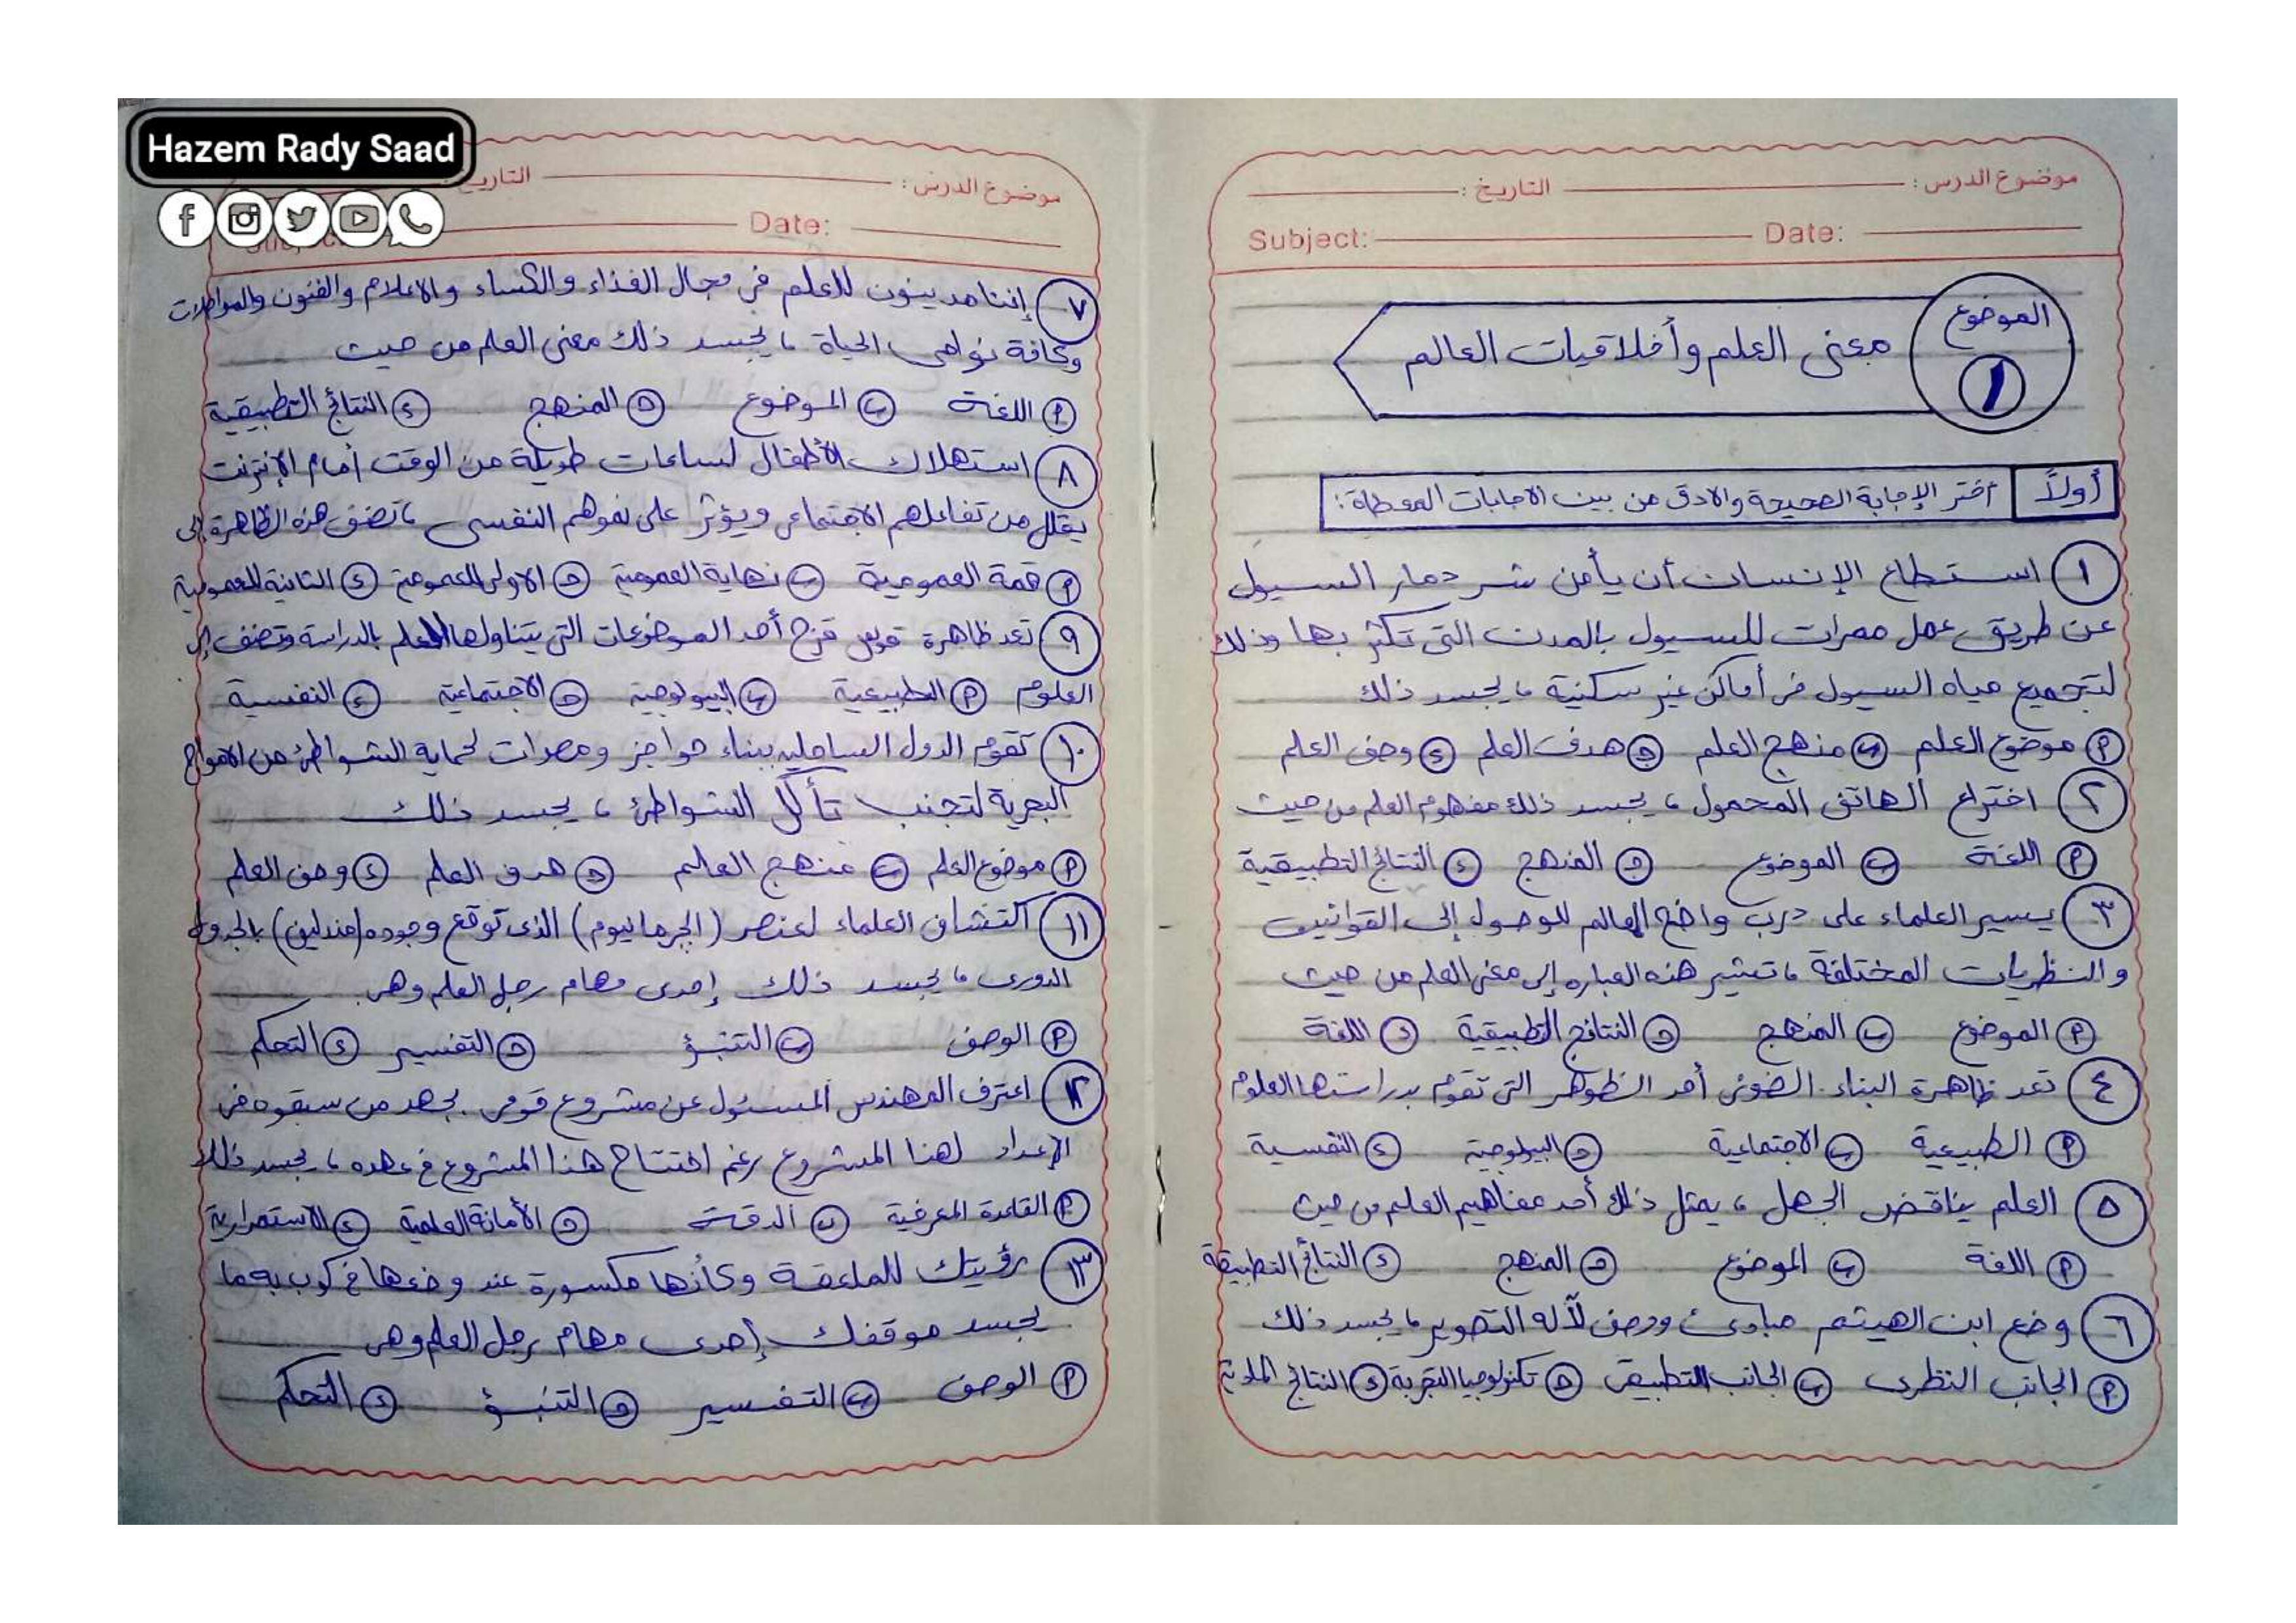 موضوع الدرس : التاريخ :
Subject: Date:
الموضوع
١
معنى العلم وأخلاقيات العالم
أولاً اختر الإجابة الصحيحة والادق من بين الاجابات المعطاة :
١ استطاع الإنسان أن يأمن شر دمار السيول
عن طريق عمل ممرات للسيول بالمدن التى تكثر بها وذلك
لتجميع مياه السيول فى أماكن غير سكنية ، يجسد ذلك
أ موضوع العلم ب منهج العلم ج هدف العلم د وصف العلم
٢ اختراع الهاتف المحمول ، يجسد ذلك مفهوم العلم من حيث
أ اللغة ب الموضوع ج المنهج د النتائج التطبيقية
٣ يسير العلماء على درب واضح المعالم للوصول إلى القوانين
والنظريات المختلفة ، تشير هذه العباره إلى معنى العلم من حيث
أ الموضوع ب المنهج ج النتائج التطبيقية د اللغة
٤ تعد ظاهرة البناء الضوئى أحد الظواهر التى تقوم بدراستها العلوم
أ الطبيعية ب الاجتماعية ج البيولوجية د النفسية
٥ العلم يناقض الجهل ، يمثل ذلك أحد مفاهيم العلم من حيث
أ اللغة ب الموضوع ج المنهج د النتائج التطبيقة
٦ وضع ابن الهيثم مبادئ ووصف لآله التصوير ، يجسد ذلك
أ الجانب النظرى ب الجانب التطبيقى ج تكنولوجيا التجربة د النتائج
Hazem Rady Saad
موضوع الدرس : التاريخ
Date:
٧ إننا مدينون للعلم فى مجال الغذاء والكساء والاعلام والفنون والمواصلات
وكافة نواحى الحياة ، يجسد ذلك معنى العلم من حيث
أ اللغة ب الموضوع ج المنهج د النتائج التطبيقية
٨ استهلاك الأطفال لساعات طويلة من الوقت أمام الإنترنت
يقلل من تفاعلهم الاجتماعى ويؤثر على نموهم النفسى ، تصنف هذه الظاهرة إلى
أ قمة العمومية ب نهاية العمومية ج الاولى للعمومية د الثانية للعمومية
٩ تعد ظاهرة قوس قزح أحد الموضوعات التى يتناولها العلم بالدراسة وتصنف إلى
العلوم أ الطبيعية ب البيولوجية ج الاجتماعية د النفسية
١٠ تقوم الدول الساحلية ببناء حواجز ومصدات لحماية الشواطئ من الامواج
البحرية لتجنب تأكل الشواطئ ، يجسد ذلك
أ موضوع العلم ب منهج العلم ج هدف العلم د وصف العلم
١١ اكتشاف العلماء لعنصر (الجرمانيوم) الذى توقع وجوده (مندلين) بالجدول
الدورى ، يجسد ذلك إحدى مهام رجل العلم وهى
أ الوصف ب التنبؤ ج التفسير د التحكم
١٢ اعترف المهندس المسئول عن مشروع قومى بجهد من سبقوه فى
الإعداد لهذا المشروع رغم افتتاح هذا المشروع فى عهده ، يجسد ذلك
أ القاعدة المعرفية ب الدقة ج الأمانة العلمية د الاستمرارية
١٣ رؤيتك للملعقة وكأنها مكسورة عند وضعها فى كوب به ماء
يجسد موقفك إحدى مهام رجل العلم وهى
أ الوصف ب التفسير ج التنبؤ د التحكم